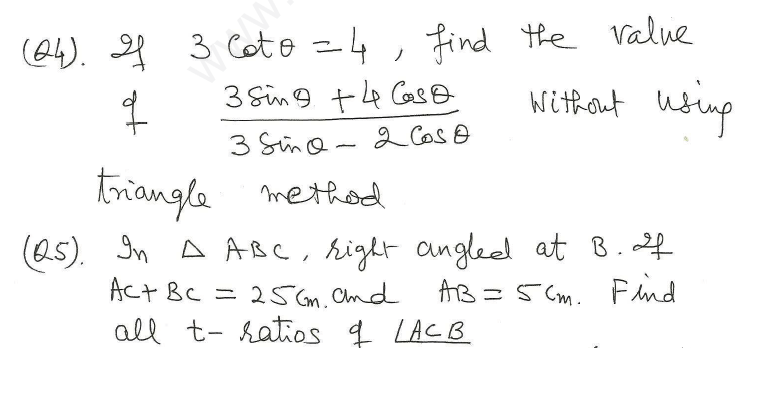 (Q4). If 3 Cotθ = 4, find the value
of (3 Sinθ + 4 Cosθ)/(3 Sinθ - 2 Cosθ) without using
triangle method
(Q5). In Δ ABC, right angled at B. If
AC + BC = 25 Cm. and AB = 5 Cm. Find
all t-ratios of ∠ACB